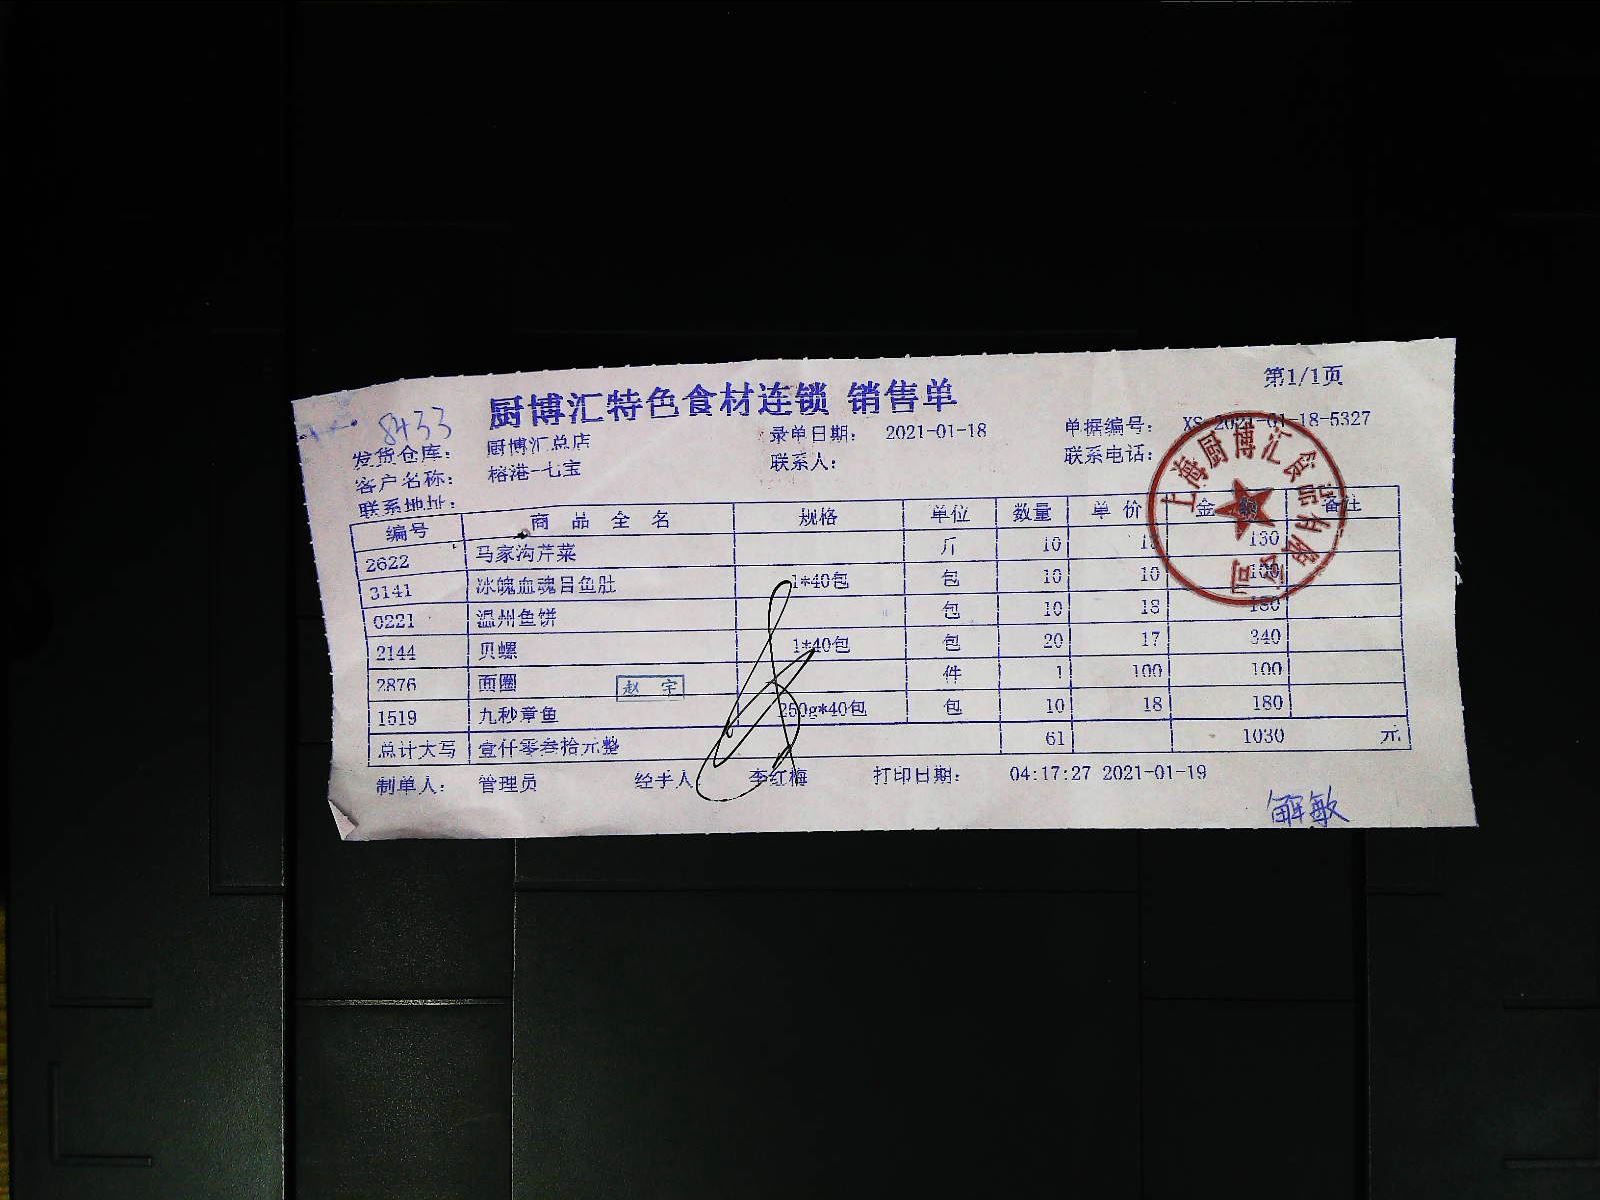 第1/1页
厨博汇特色食材连锁 销售单
8433
发货仓库: 厨博汇总店 录单日期: 2021-01-18 单据编号: XS-2021-01-18-5327
客户名称: 榕港-七宝 联系人: 联系电话:
联系地址:
编号 商品全名 规格 单位 数量 单价 金额 备注
2622 马家沟芹菜 斤 10 130
3141 冰魄血魂目鱼肚 1*40包 包 10 10 100
0221 温州鱼饼 包 10 18 180
2144 贝螺 1*40包 包 20 17 340
2876 面圈 件 1 100 100
赵宇
1519 九秒章鱼 250g*40包 包 10 18 180
总计大写 壹仟零叁拾元整 61 1030 元
制单人: 管理员 经手人 李红梅 打印日期: 04:17:27 2021-01-19
解敏
上海厨博汇食品有限公司